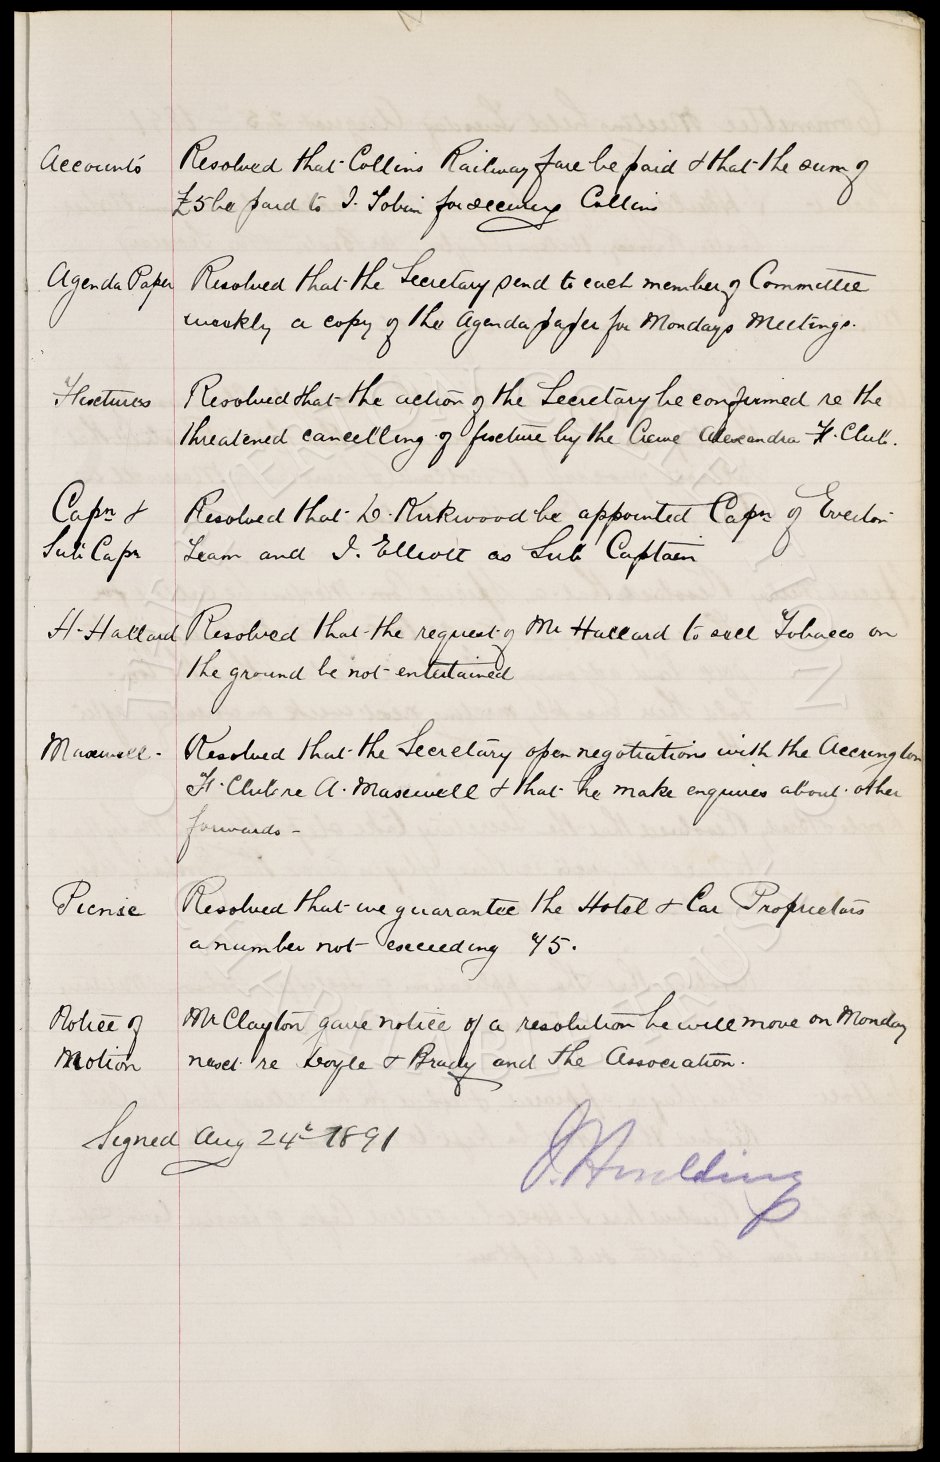 Accounts Resolved that Collins Railway fare be paid & that the sum of
£5 be paid to J. Tobin for securing Collins
Agenda Paper Resolved that the Secretary send to each member of Committee
weekly a copy of the Agenda paper for Mondays Meetings.
Fixtures Resolved that the action of the Secretary be confirmed re the
threatened cancelling of fixture by the Crewe Alexandra F. Club.
Capn & Resolved that D. Kirkwood be appointed Capn of Everton
Sub Capn Team and J. Elliott as Sub Captain
H. Hallard Resolved that the request of Mr Hallard to sell Tobacco on
the ground be not entertained
Maxwell - Resolved that the Secretary open negotiations with the Accrington
F. Club re A. Maxwell & that he make enquiries about other
forwards -
Picnic Resolved that we guarantee the Hotel & Car Proprietors
a number not exceeding 45.
Notice of Mr Clayton gave notice of a resolution he will move on Monday
Motion next re Doyle & Brady and the Association.
Signed Aug 24th 1891 J. Houlding